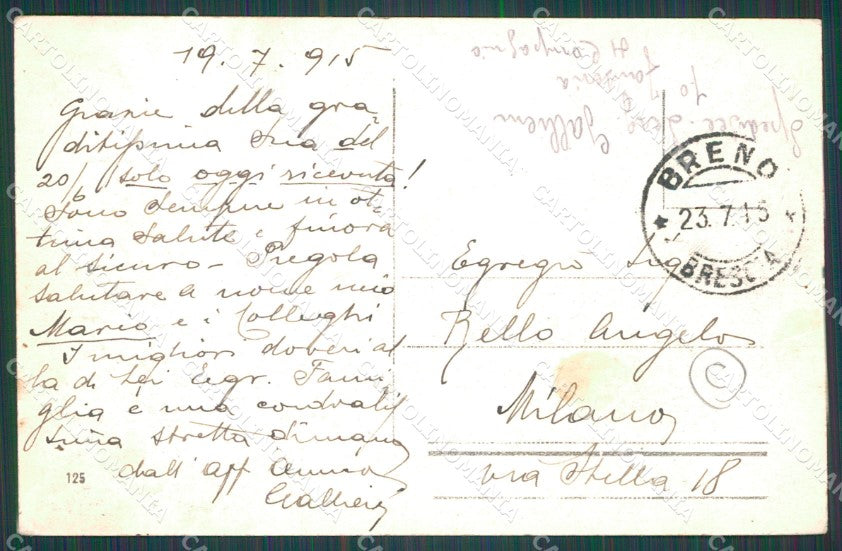 19.7.915
Grazie della gra=
ditissima sua del
20/6 solo oggi ricevuta!
Sono sempre in ot=
tima salute e finora
al sicuro - Pregola
salutare a nome mio
Mario e i Colleghi
I migliori doveri al
la di Lei Egr. Fami=
glia e una cordialis
sima stretta di mano
dall' aff amico
Gallieni
125
Spedisce
Gallieni
70 Fanteria
4 Compagnia
BRENO
23.7.15
BRESCIA
Egregio Sig
Rello Angelo
Milano
via Stella 18
C
CARTOLINOMANIA